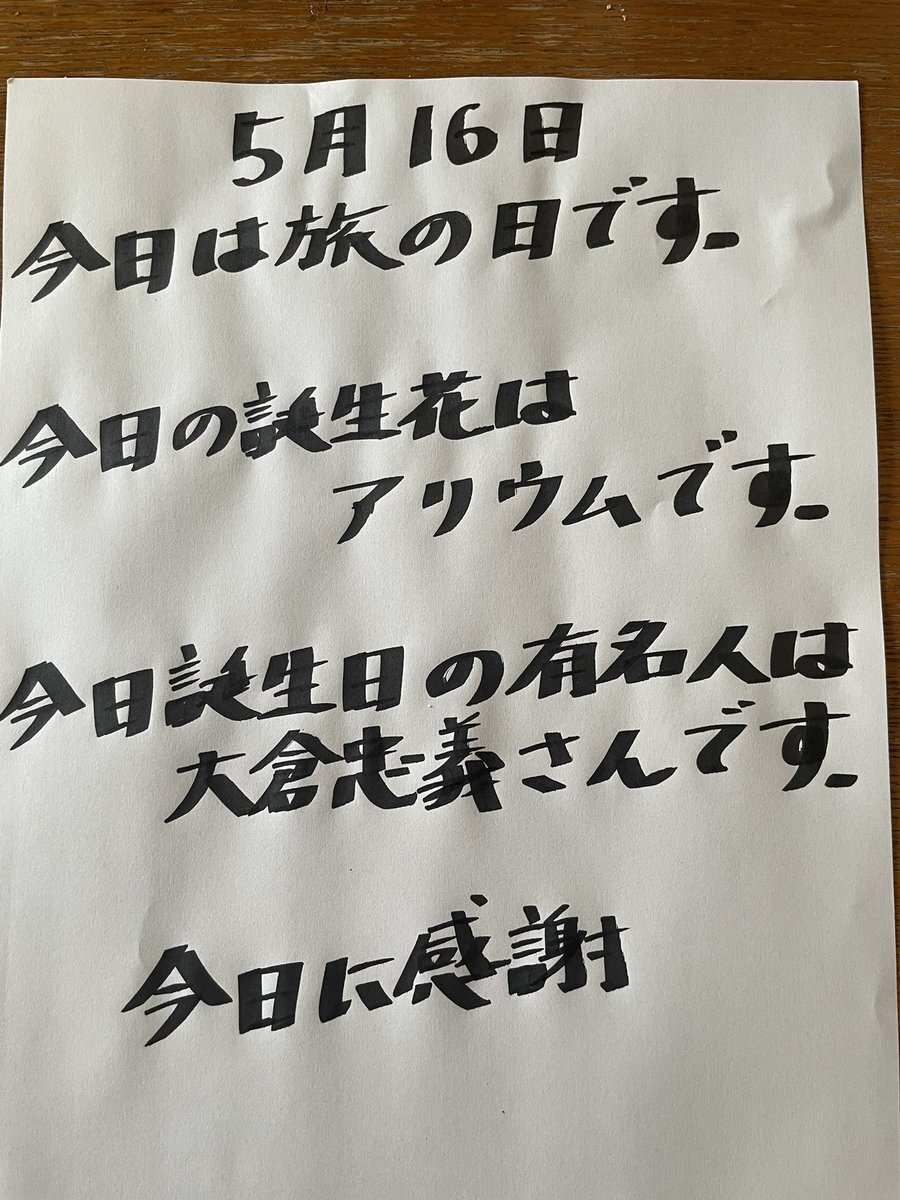 5月16日
今日は旅の日です_
今日の誕生花は
アリウムです_
今日誕生日の有名人は
大倉忠義さんです_
今日に感謝